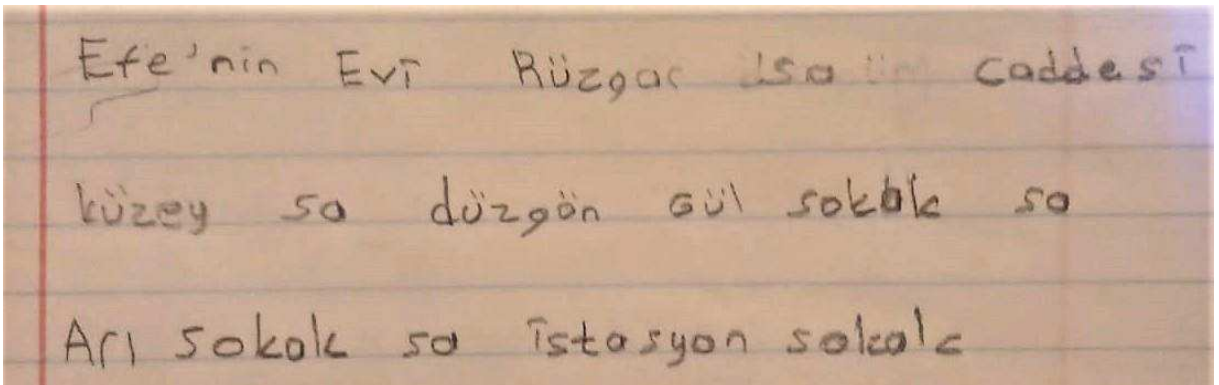 Efe'nin Evi Rüzgar caddesi
küzey sa düzgön Gül sokak sa
Arı sokak sa istasyon sokak